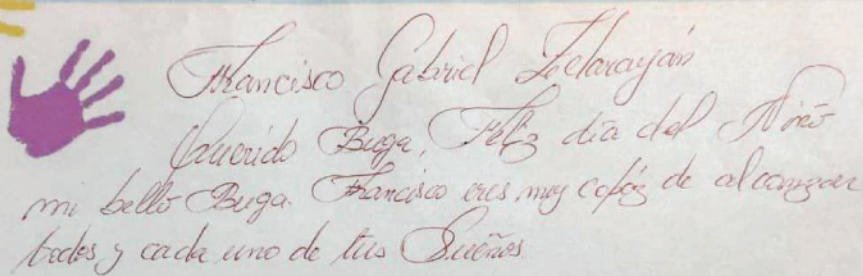 Francisco Gabriel Zelarayán
Querido Buga, Feliz día del Niño
mi bello Buga. Francisco eres muy capáz de alcanzar
todos y cada uno de tus Sueños